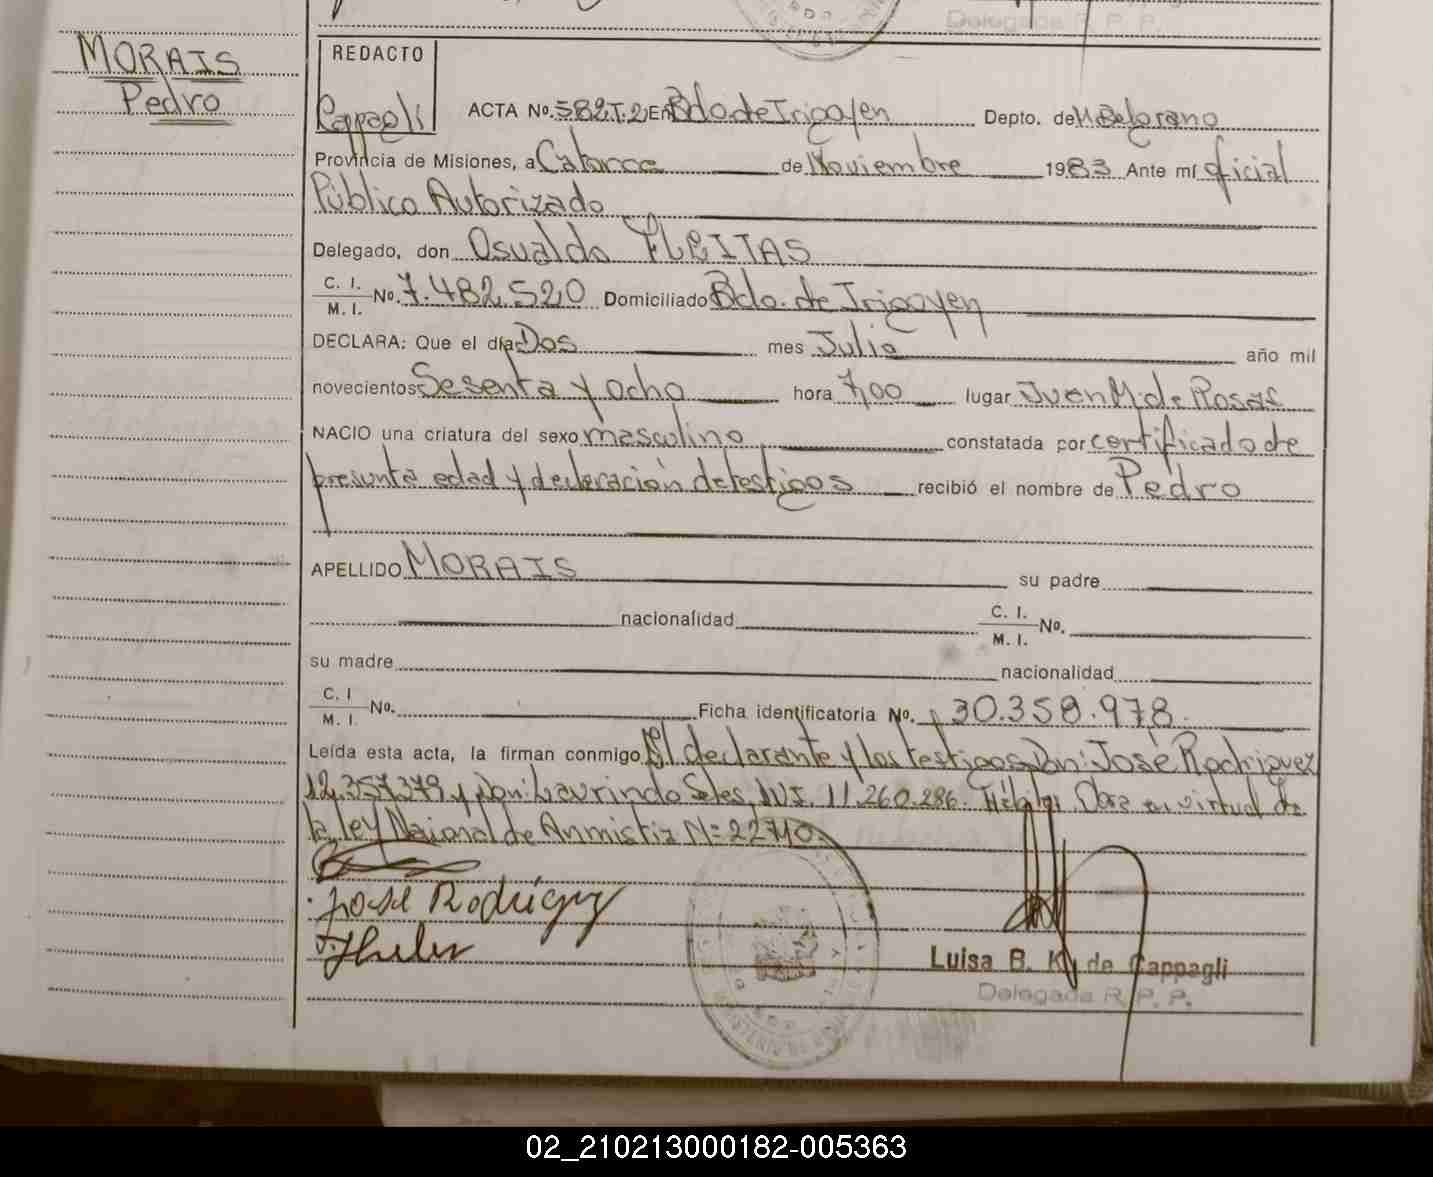 Delegada R. P. P.
MORAIS
Pedro
REDACTO
Cappagli
ACTA No. 582 T. 2 EN Bdo. de Irigoyen Depto. de M Belgrano
Provincia de Misiones, a Catorce de Noviembre 1983 Ante mí oficial
Público Autorizado
Delegado, don Osvaldo FLEITAS
C. I. / M. I. No. 7.482.520 Domiciliado Bdo. de Irigoyen
DECLARA: Que el día Dos mes Julio año mil
novecientos Sesenta y ocho hora 7,00 lugar Juan M. de Rosas
NACIO una criatura del sexo masculino constatada por certificado de
presunta edad y declaración de testigos recibió el nombre de Pedro
APELLIDO MORAIS su padre
nacionalidad C. I. / M. I. No.
su madre nacionalidad
C. I / M. I. No. Ficha identificatoria No. 30.358.978.
Leída esta acta, la firman conmigo El declarante y los testigos Don: José Rodriguez
12.357.379 y Don: Laurindo Sales, M.I. 11.260.286. en virtud de
la ley Nacional de Anmistia N= 22710.
José Rodriguez
Luisa B. K. de Cappagli
Delegada R. P. P.
02_210213000182-005363